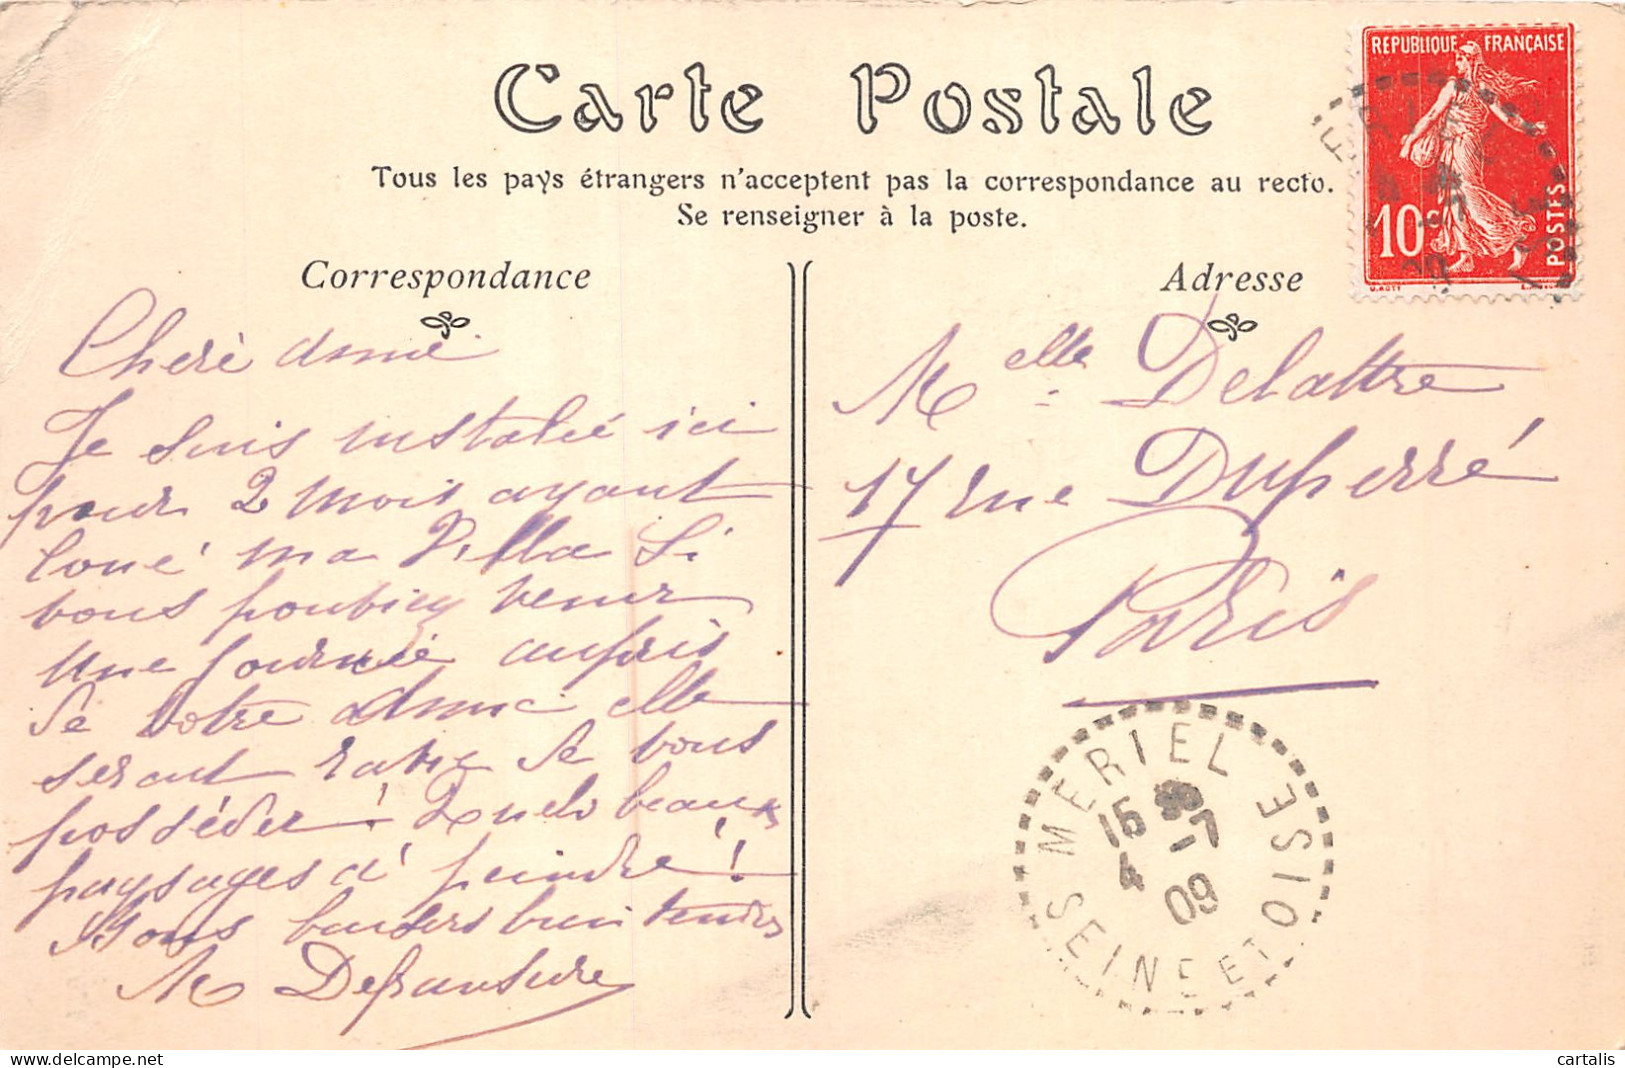 Carte Postale
Tous les pays étrangers n'acceptent pas la correspondance au recto.
Se renseigner à la poste.
Correspondance
Adresse
REPUBLIQUE FRANÇAISE
10c
POSTES
Cherè amie
Je suis installé ici
pour 2 mois ayant
loué ma Villa Si
vous pouviez venir
une journée auprès
de votre amie elle
serait ravie de vous
posséder ! Quels beaux
paysages à peindre !
bien tendres
M
Melle Delattre
17 rue Duperré
Paris
MERIEL
15
4 -7
09
SEINE ET OISE
cartalis